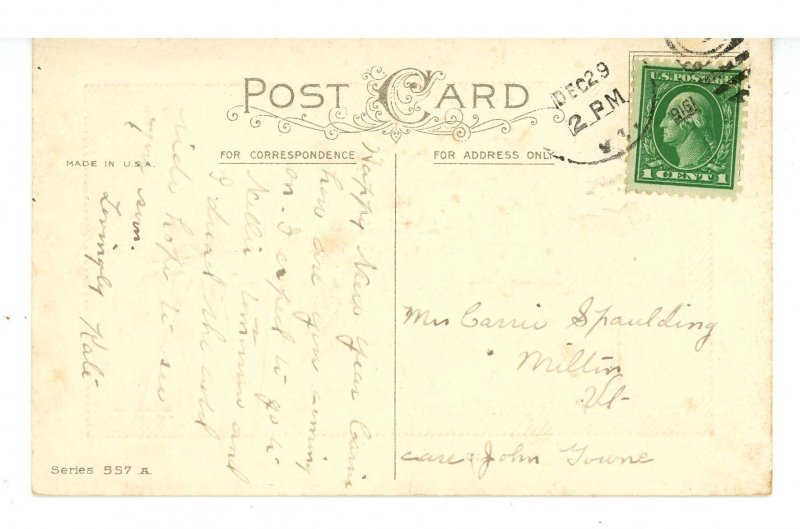 POST CARD
FOR CORRESPONDENCE
FOR ADDRESS ONLY
MADE IN U.S.A.
DEC 29
2 PM
1916
VT.
U.S. POSTAGE
1 CENT 1
Happy New year Carrie
how are you coming
on. I expect to go to
Nellie tomorrow and
I dread the cold
ride hope to see
you soon.
Lovingly Kate
Mrs Carrie Spaulding
Milton
Vt-
care John Towne
Series 557 A.